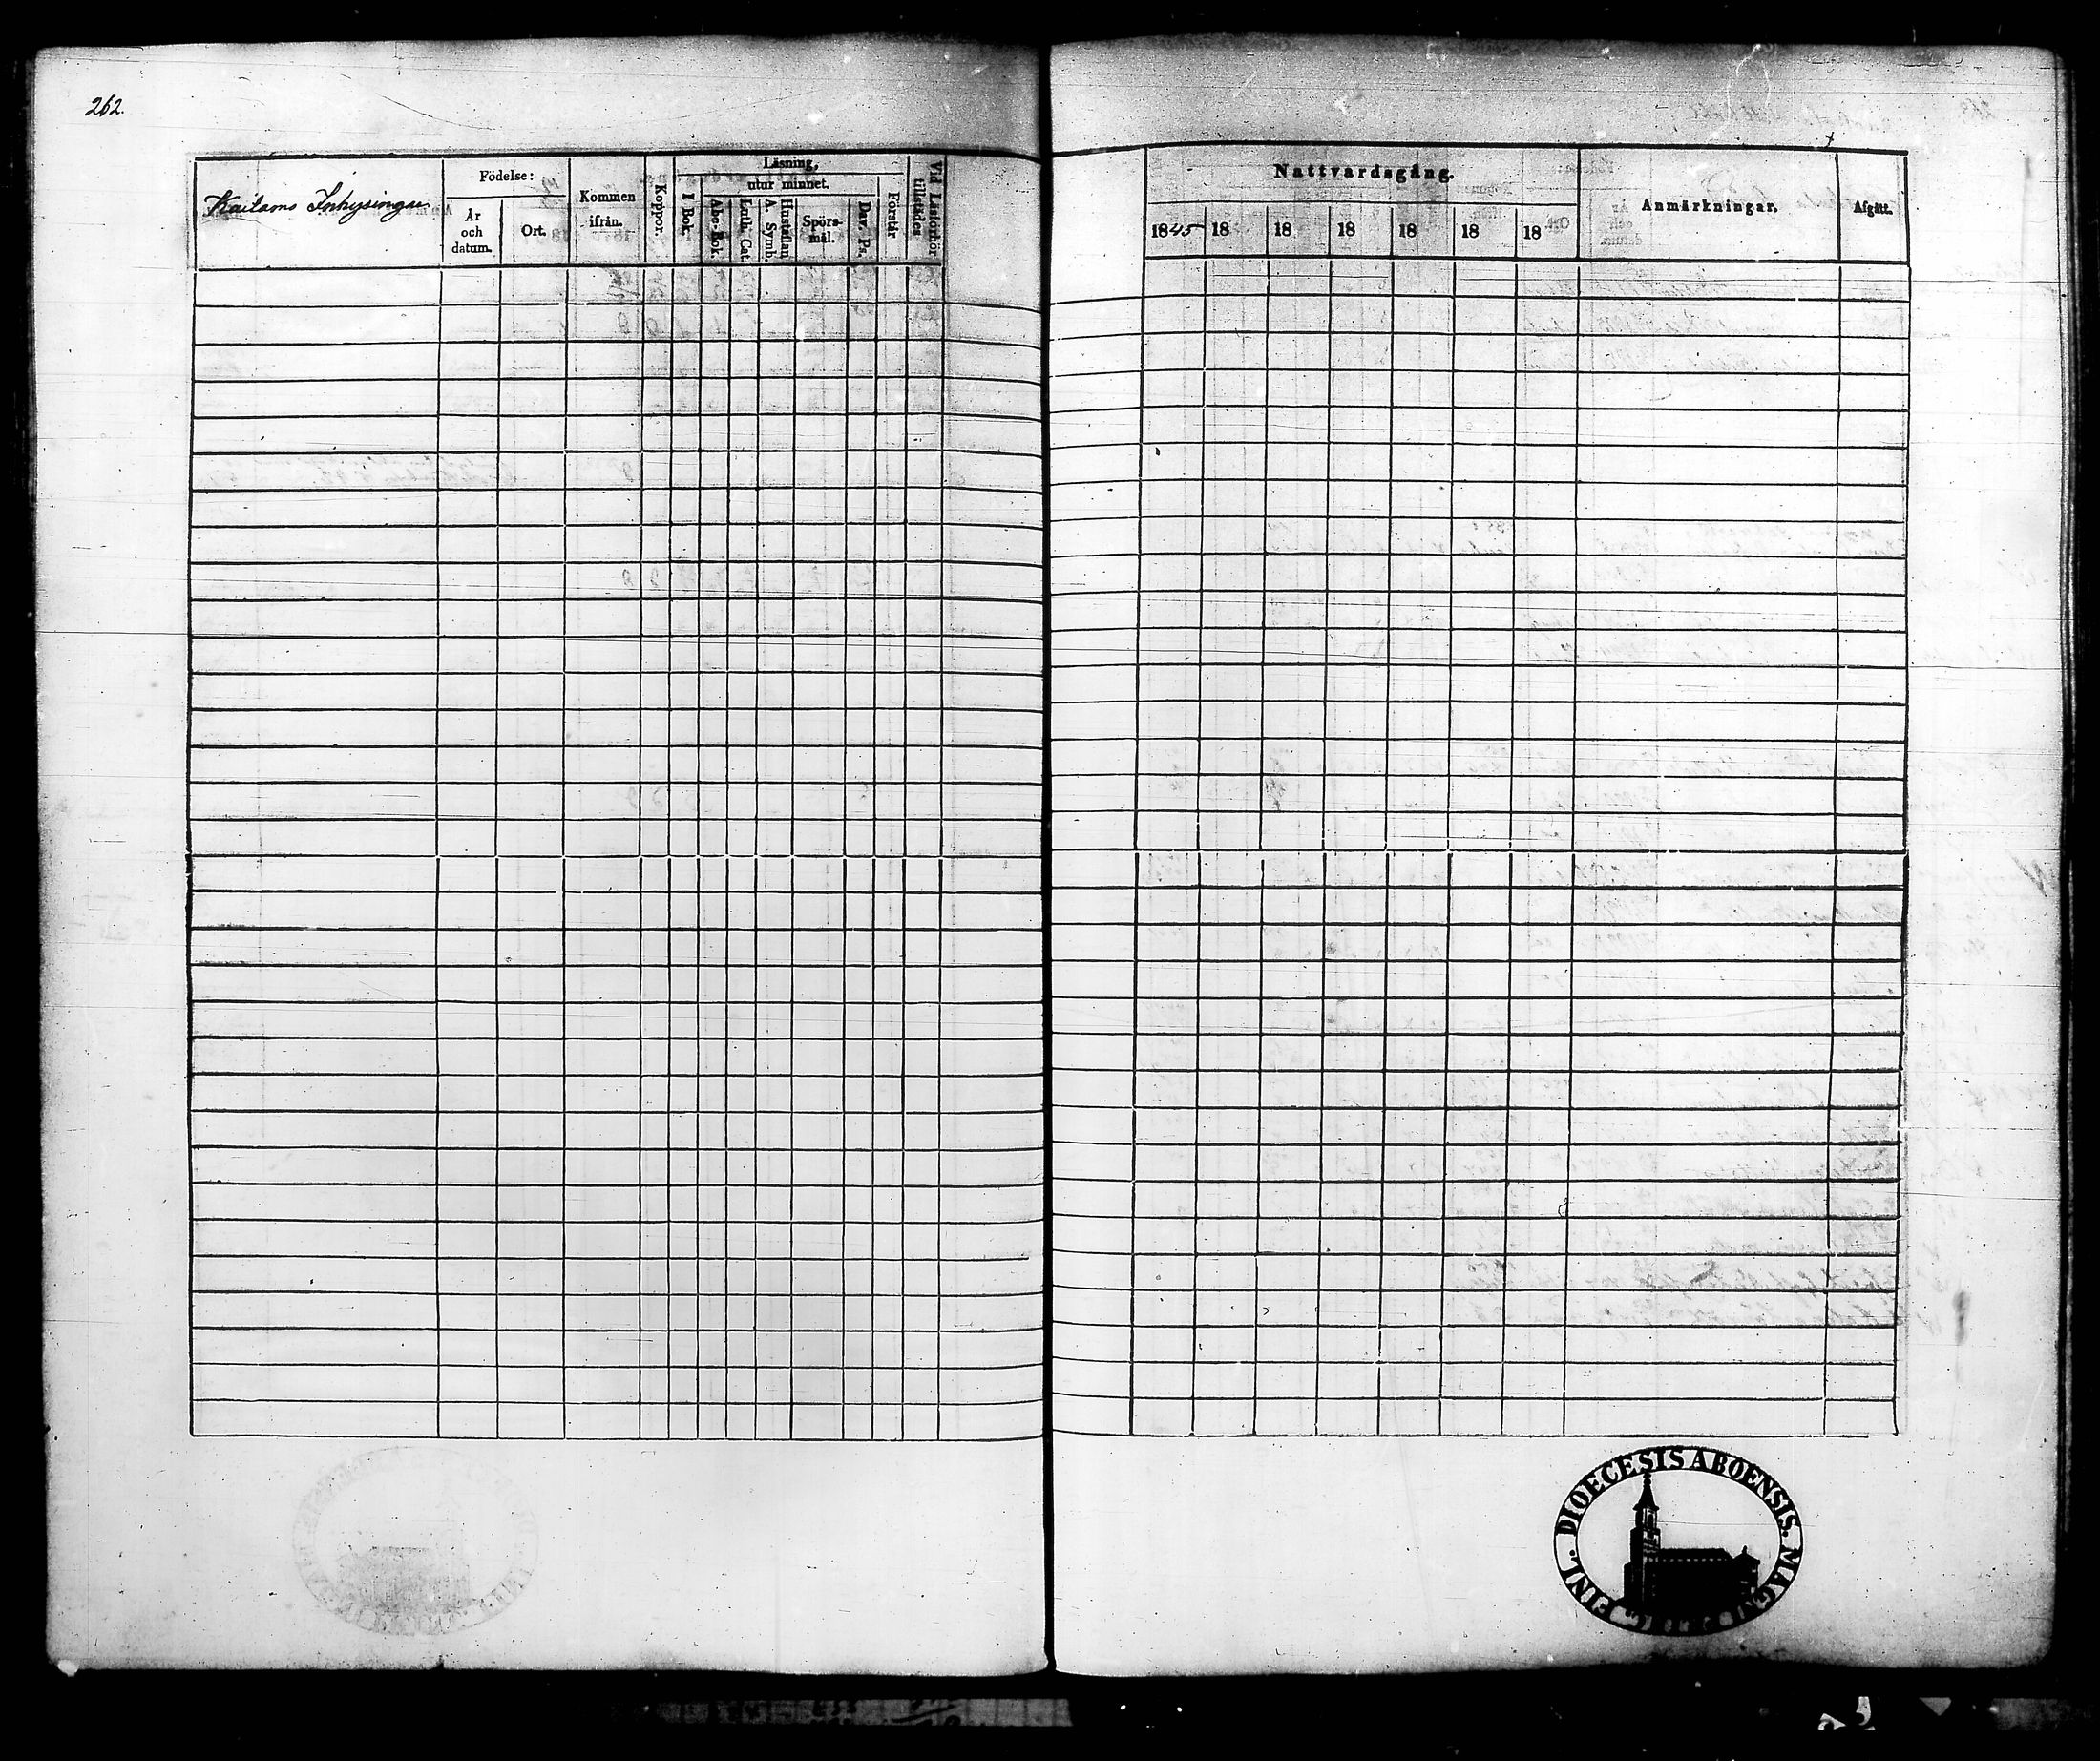 262.
Kaitamo Inhysingar
Födelse:
År och datum.
Ort.
Kommen ifrån.
Koppor.
Läsning,
utur minnet.
I Bok.
Abc-Bok.
Luth. Cat.
Hustaflan A. Symb.
Spörsmål.
Dav. Ps.
Förstår
Vid Läsförhör tillstädes
Nattvardsgång.
1845 18 18 18 18 18 18
Anmärkningar.
Afgått.
FINL. DIOECESIS ABOENSIS. MAGNI